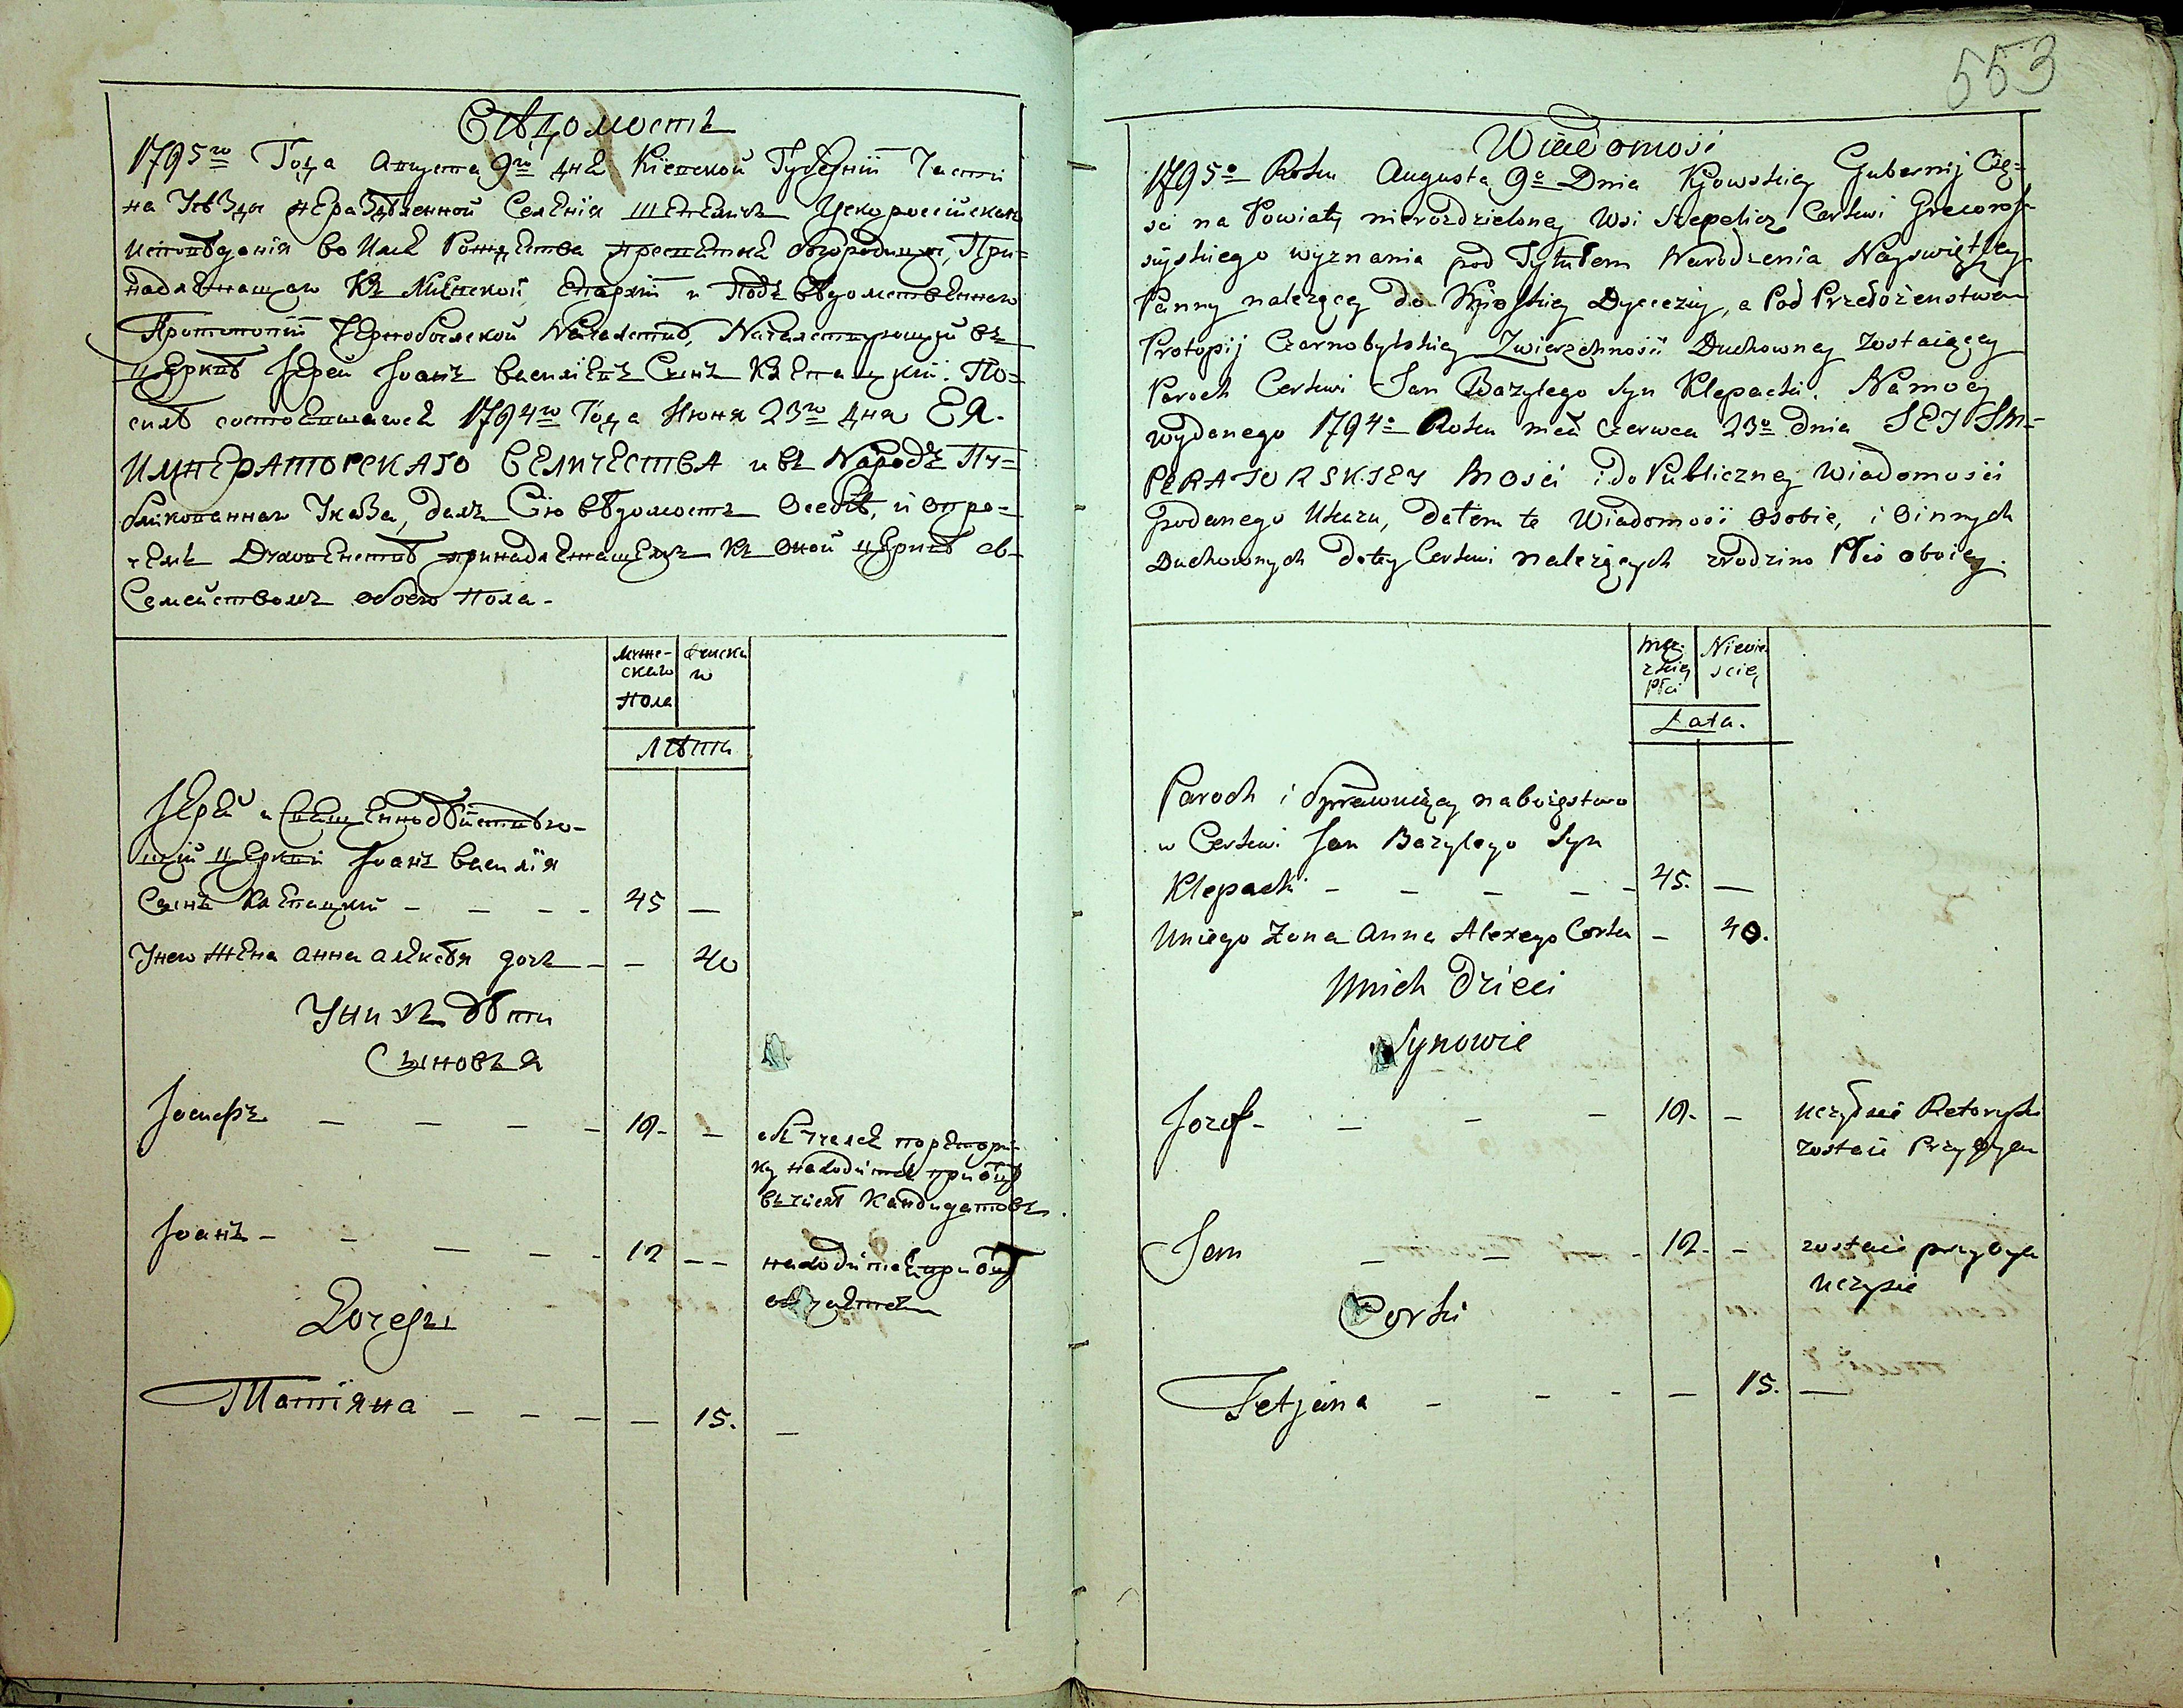 Вѣдомость
1795го Года Августа 9го дня Кіевской Губерніи Части
на Уѣзды нераздѣленной Селенія Шепеличъ Грекороссійскаго
исповѣданія во имя Рождества пресвятыя богородицы, При=
надлежащаго Къ Минской Епархіи и подъ вѣдомственнаго
Протопопіи Чернобылской
церквѣ Іерей Іоанъ василіевъ Сынъ Клепацкій. По=
силѣ состоявшагося 1794го Года Июня 23го дня ЕЯ.
ИМПЕРАТОРСКАГО ВЕЛИЧЕСТВА и въ Народъ Пу=
бликованнаго Указа, далъ Сію вѣдомость О себѣ, и о про=
чемъ Духовенствѣ принадлежащемъ къ оной церквѣ съ-
Семействомъ обоего пола.-
муже-
скаго
пола
женска
го
лѣта
Іерей и Священнодѣйствую-
щій церкви Іоанъ василія
Сынъ Клепацкий - - - - 45 —
Унего жена анна алексѣя дочъ - - 40
Унихъ дѣти
Сыновья
Іосифъ - - - - 19. - обучался пореторы-
ку находится при отцѣ
въ числѣ кандидатовъ.
Іоанъ - - - - - 12 - - находится при отцѣ
обучается
Дочери
Татіяна - - - - 15. -
553
Wiadomosć
1795o Roku Augusta 9o Dnia Kijowskiey Gubernij Czę=
sci na Powiaty nierozdzieloney Wsi Szepelicz Cerkwi Grecoros-
syiskiego wyznania pod Tytułem Narodzenia Nayswiętszey
Panny należącey do Dyecezij, a Pod Przełożenstwem
Protopij Czarnobylskiey Zwierzchności Duchowney zostaiącey
Paroch Cerkwi Jan Bazylego Syn Klepacki. Namocy
wydanego 1794o Roku mca Czerwca 23o dnia JEJ IM=
PERATORSKIEY Mości i do Publiczney Wiadomości
Podanego Ukazu, dałem te Wiadomość O sobie, i O innych
Duchownych dotey Cerkwi należących z rodziną Płci oboiey.
męz-
zkiey
Płci
Niewie
sciey
Lata.
Paroch i Sprawuiący nabożęstwo
w Cerkwi Jan Bazylego Syn
Klepacki - - - - - 45. —
Uniego Żona Anna Alexego Corka - 40.
Unich Dzieci
Synowie
Jozef - - - - 19. - uczył się Retoryki
zostaie Przy Oycu
Jan - - - 12. - zostaie przy Oycu
uczy sie
Corki
Tetjana - - - - 15. —